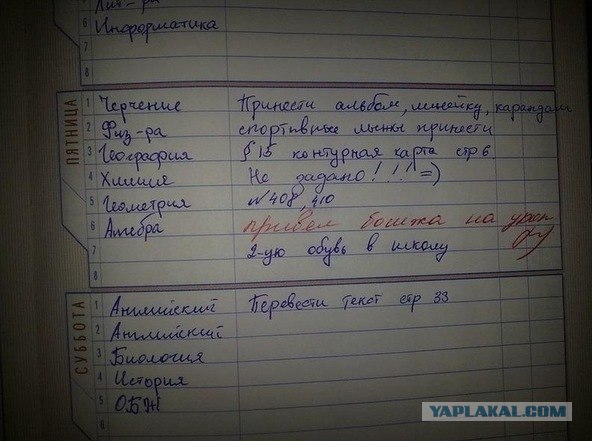 Лит-ра
6 Информатика
7
8
ПЯТНИЦА
1 Черчение Принести альбом, линейку, карандаш
2 Физ-ра спортивные лыжы принести
3 География § 15 контурная карта стр 6.
4 Химия Не задано!!!! =)
5 Геометрия № 408, 410
6 Алгебра привел бомжа на урок
7 2-ую обувь в школу
8
СУББОТА
1 Английский Перевести текст стр 33
2 Английский
3 Биология
4 История
5 ОБЖ
6
YAPLAKAL.COM